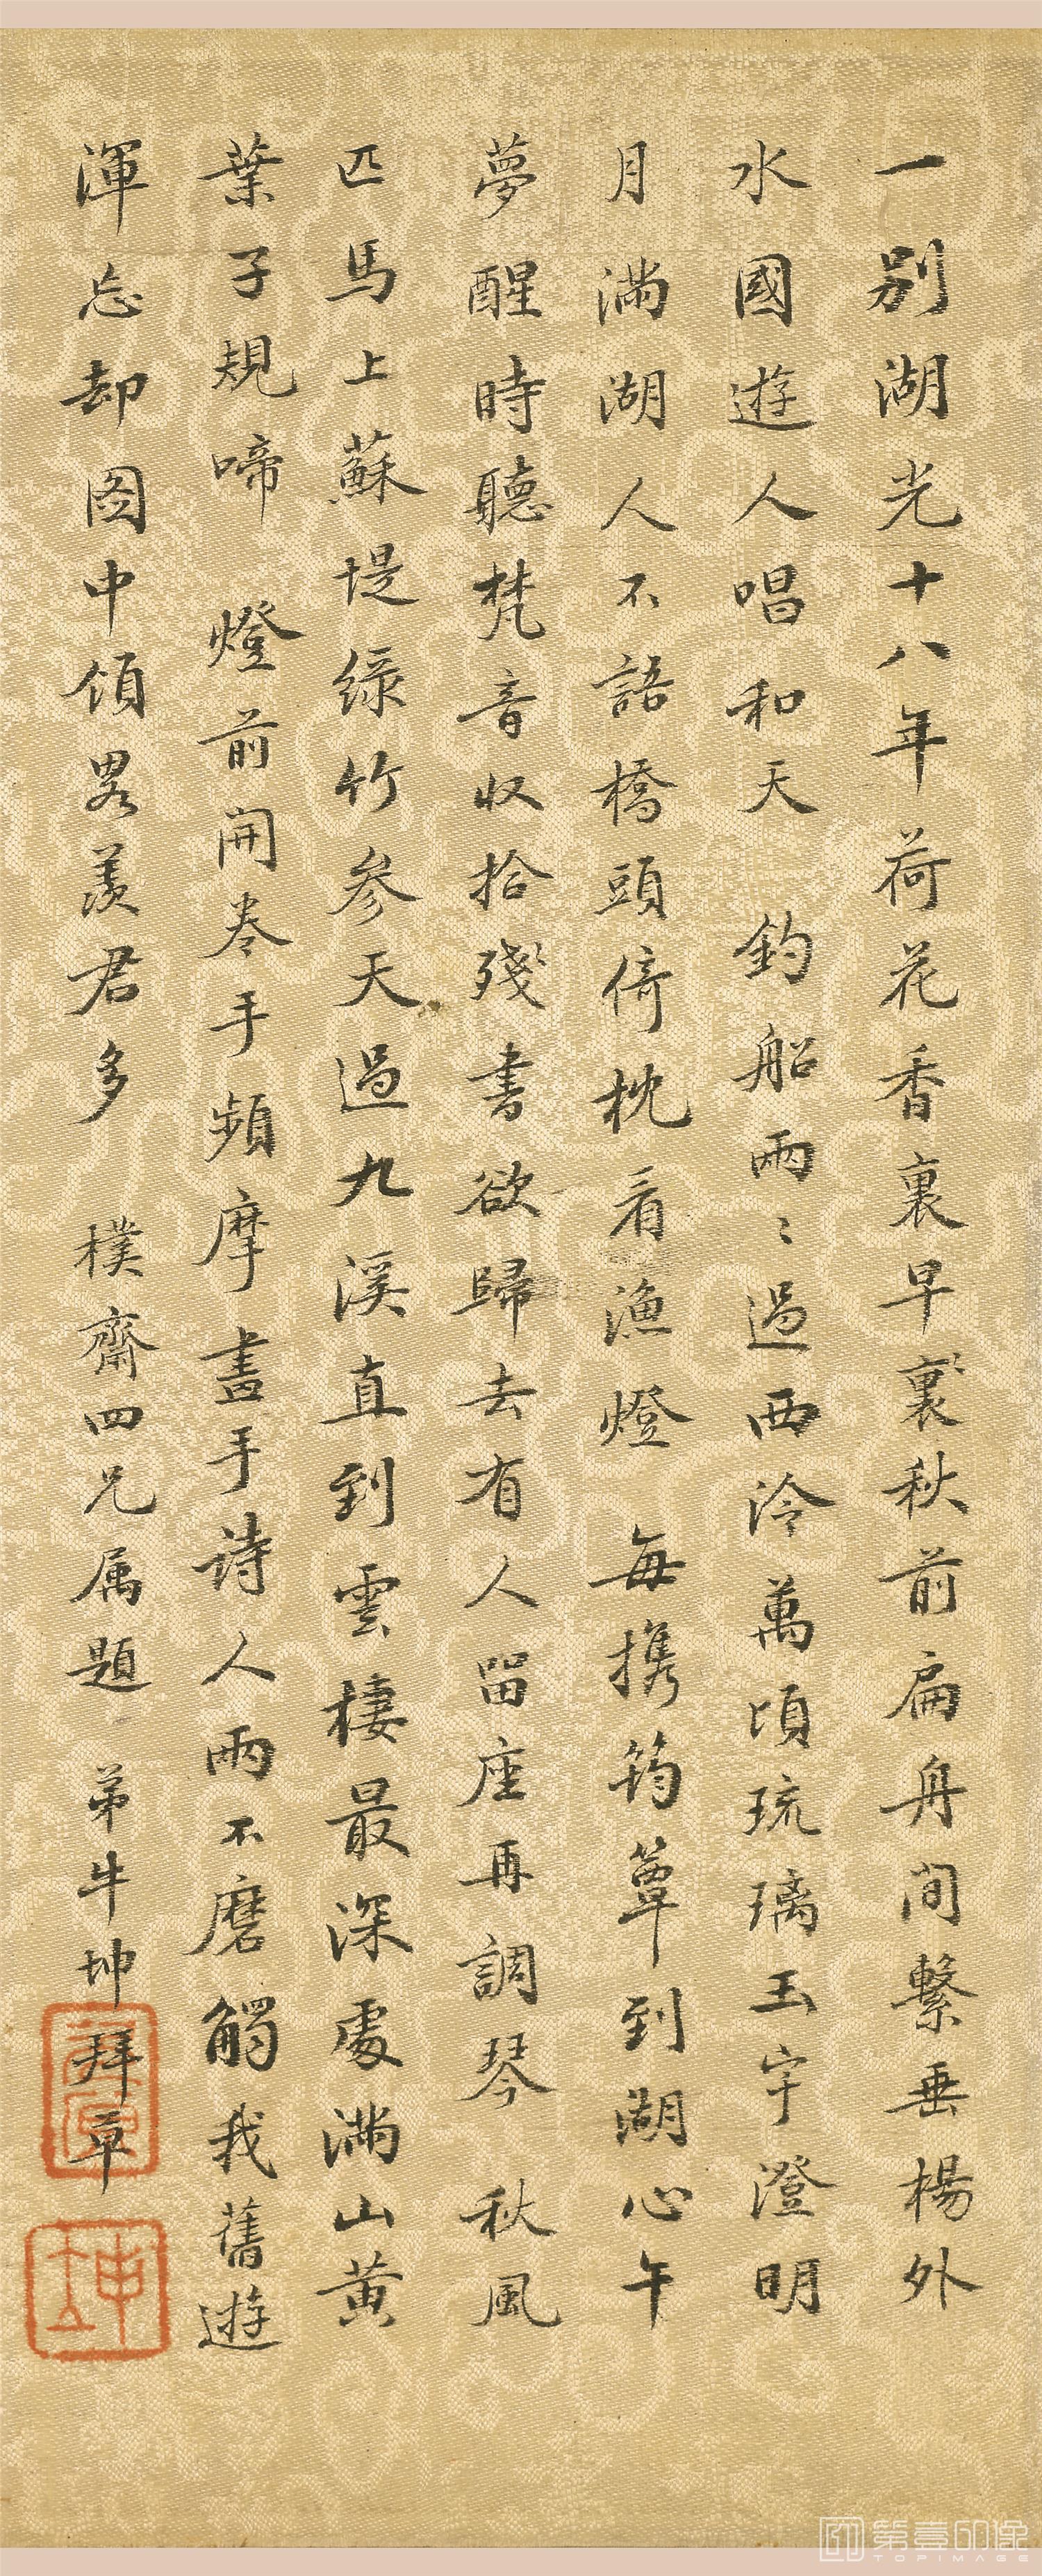 一別湖光十八年荷花香裏早裏秋前扁舟閒繫垂楊外
水國遊人唱和天　釣船兩〻過西泠萬頃琉璃玉宇澄明
月滿湖人不語橋頭倚枕看漁燈　每攜筠簟到湖心午
夢醒時聽梵音收拾殘書欲歸去有人留座再調琴　秋風
匹馬上蘇堤綠竹參天過九溪直到雲棲最深處滿山黃
葉子規啼　燈前開卷手頻摩畫手詩人兩不磨觸我舊遊
渾忘却图中領畧羨君多　樸齋四兄属題　弟牛坤拜草
坤
第壹印像
TOPIMAGE